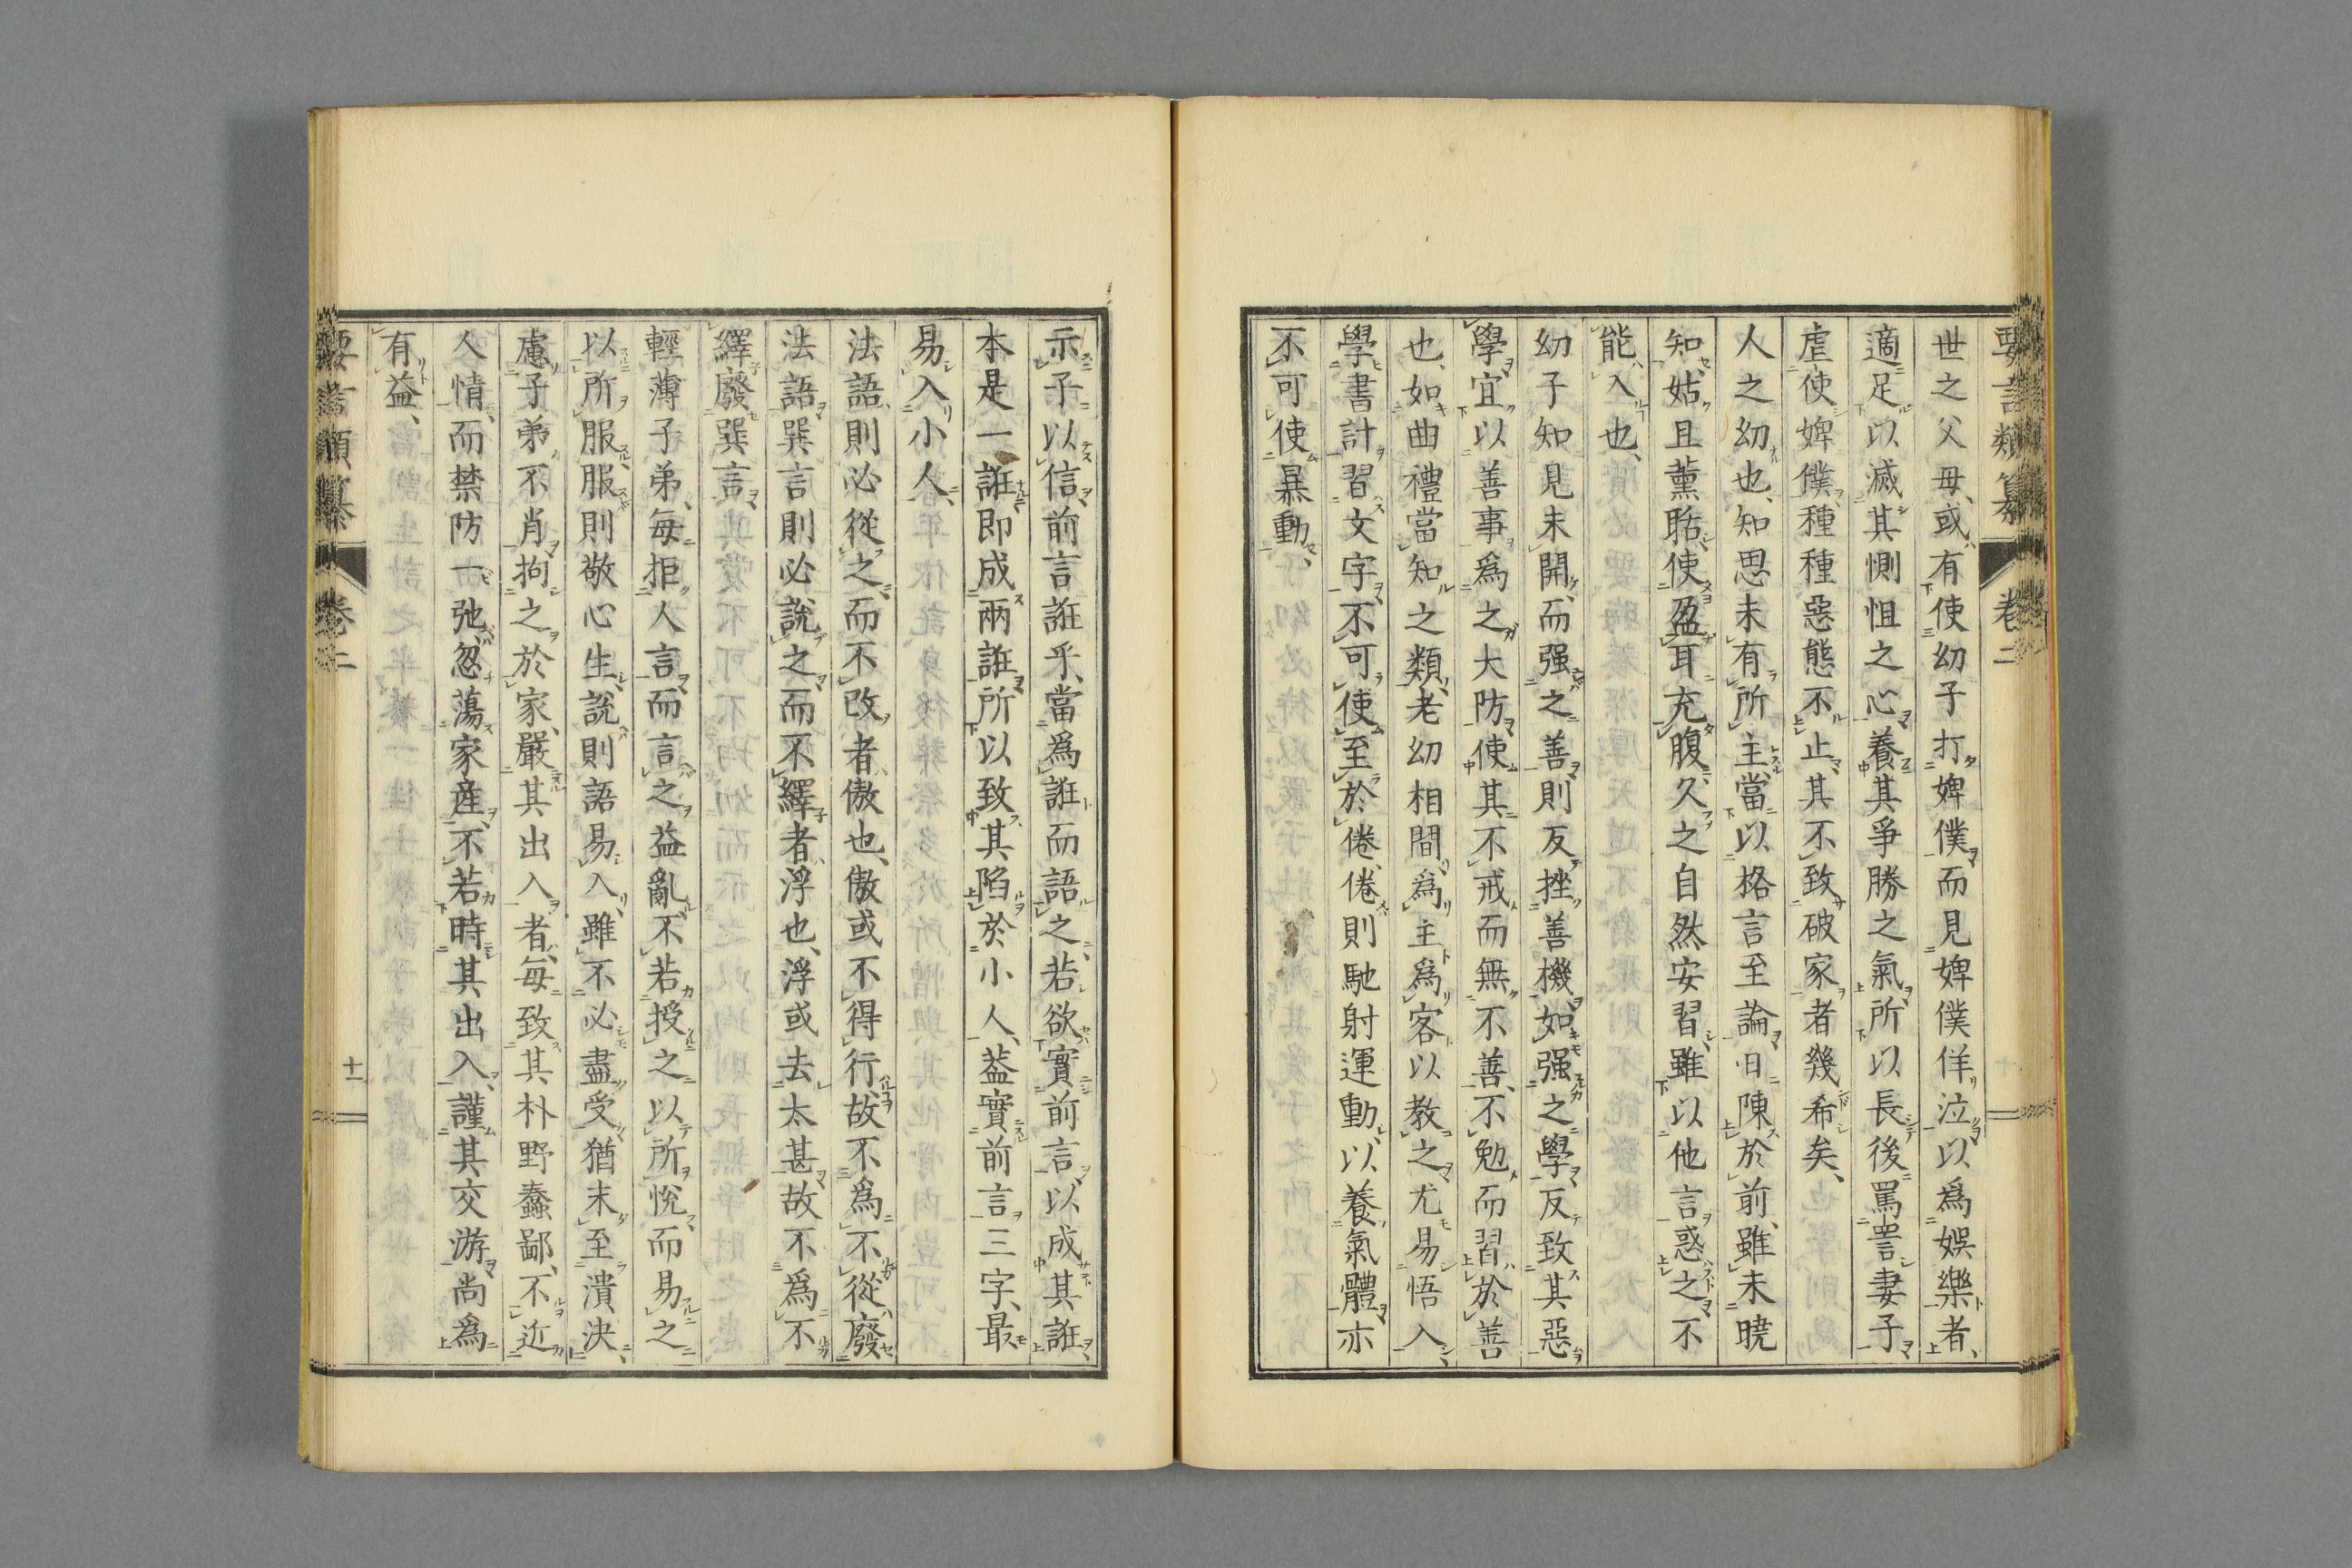 要言類纂 卷二 十
世之父母、或有使幼子打婢僕而見婢僕佯泣以爲娯樂者、
適足以滅其惻怛之心養其爭勝之氣所以長後罵詈妻子
虐使婢僕種種惡態不止、其不致破家者幾希矣、
人之幼也、知思未有所主當以格言至論日陳於前、雖未曉
知、姑且薫聒使盈耳充腹、久之自然安習、雖以他言惑之不
能入也、
幼子知見未開、而强之善則反挫善機如强之學反致其惡
學、宜以善事爲之大防使其不戒而無不善、不勉而習於善
也、如曲禮當知之類、老幼相間、爲主爲客以教之尤易悟入、
學書計習文字不可使至於倦、倦則馳射運動、以養氣體亦
不可使暴動、
示子以信、前言誑乎、當爲誑而語之、若欲實前言、以成其誑、
本是一誑即成兩誑所以致其陷於小人、葢實前言三字、最
易入小人、
法語則必從之、而不改者傲也、傲或不得行、故不爲不從廢
法語巽言則必說之而不繹者、浮也、浮或去太甚故不爲不
繹廢巽言、
輕薄子弟、毎拒人言而言之益亂不若授之以所悅而易之
以所服服則敬心生、說則語易入、雖不必盡受猶未至潰決、
慮子弟不肖拘之於家、嚴其出入者、毎致其朴野蠢鄙、不近
人情、而禁防一弛忽蕩家産、不若時其出入、謹其交游尚爲
有益、
要言類纂 卷二 十一